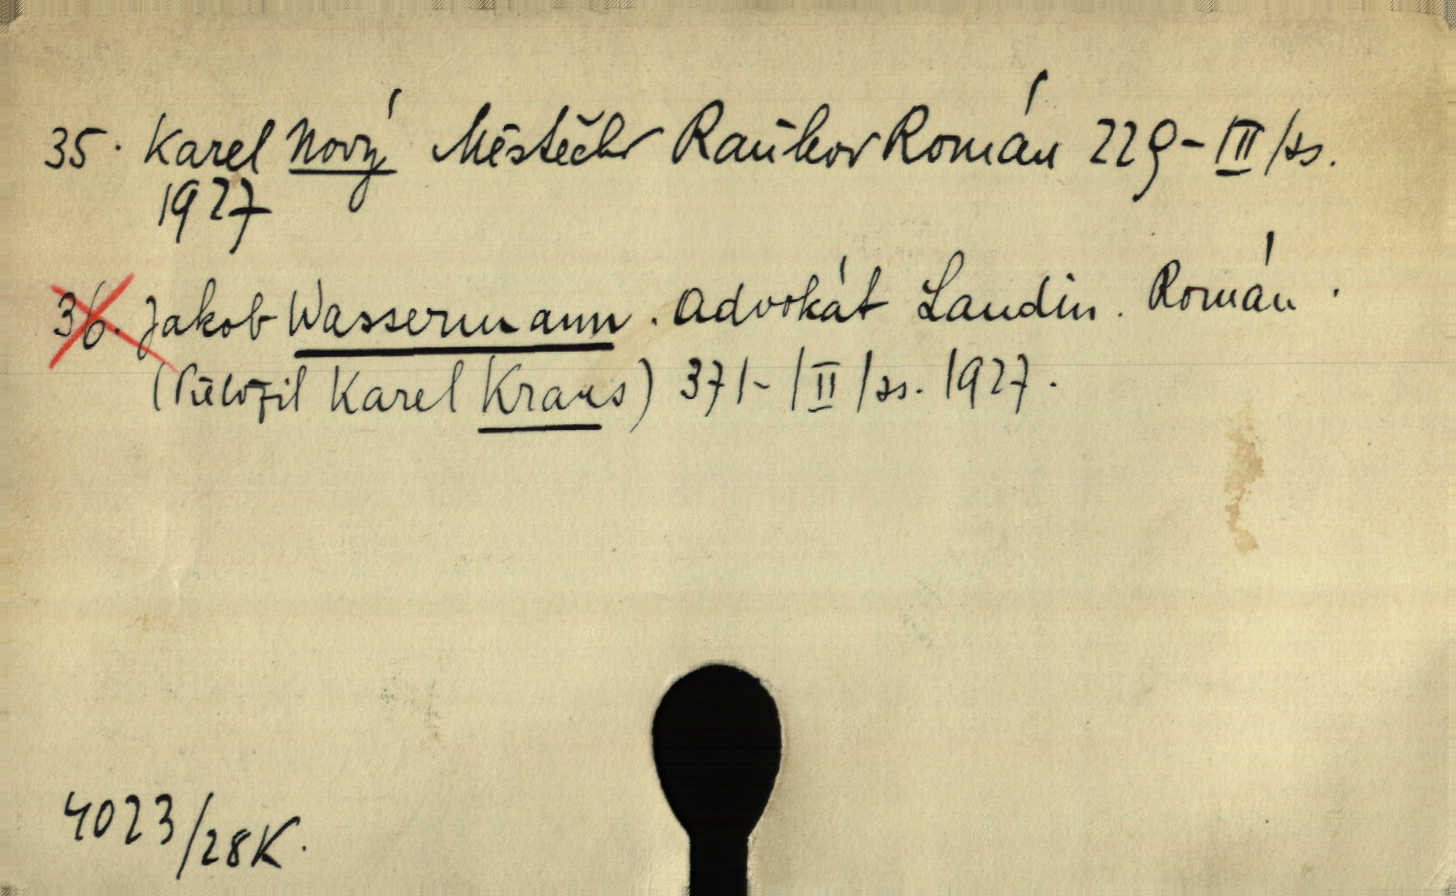 35. Karel Nový Městečko Raňkov Román 229-/III/ss.
1927
36. Jakob Wassermann. Advokát Laudin. Román.
(Přeložil Karel Kraus) 371-/II/ss. 1927.
4023/28K.